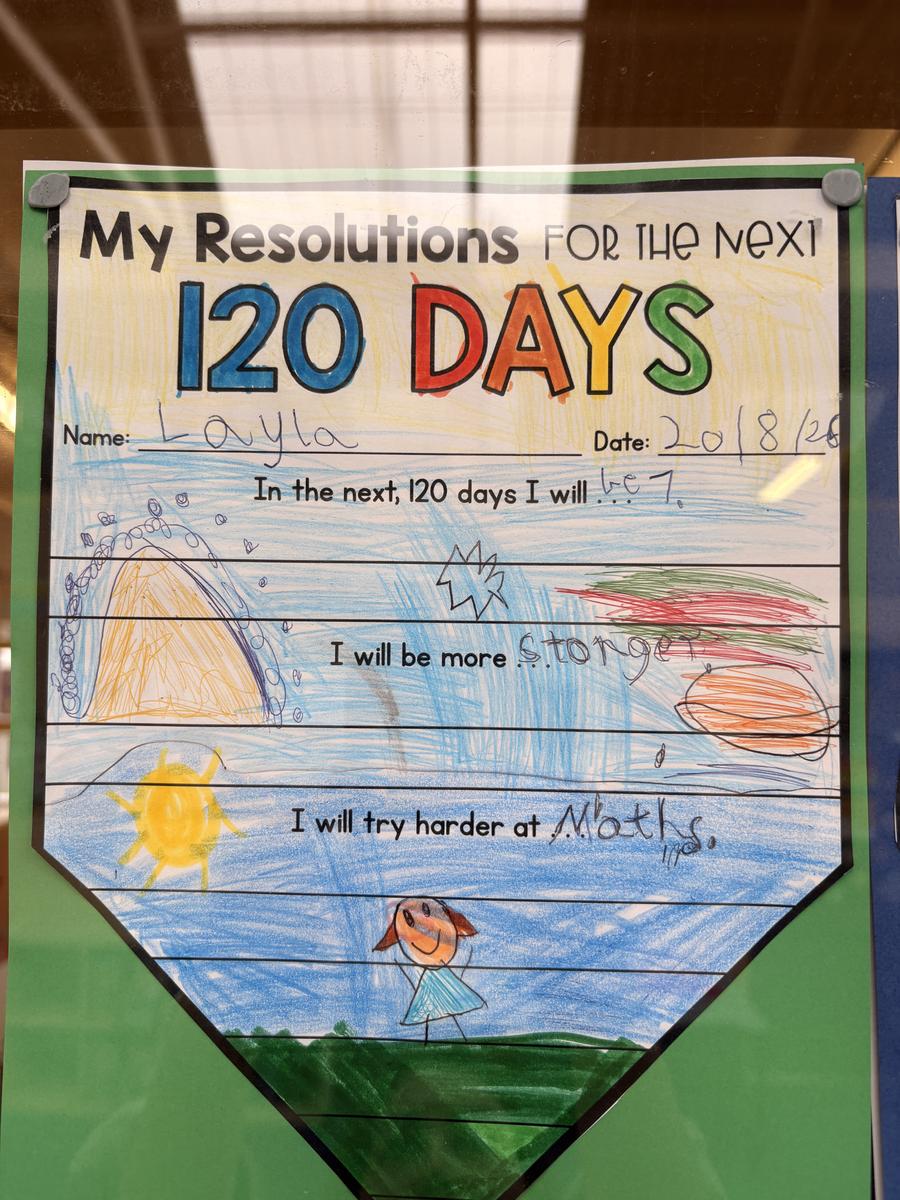 My Resolutions FOR THE NEXT
120 DAYS
Name: Layla Date: 20/8/26
In the next, 120 days I will be 7.
I will be more Stonger
I will try harder at Maths.